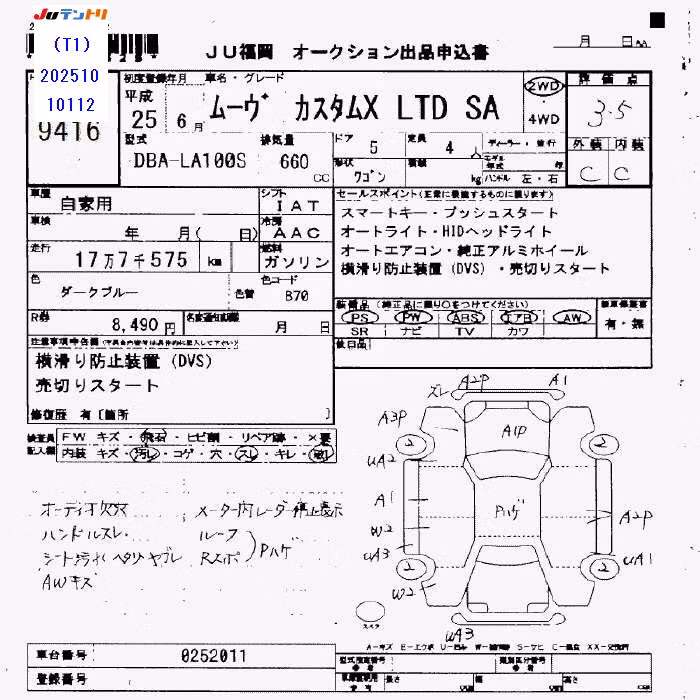 JUテントリ
(T1)
202510
10112
9416
JU福岡 オークション出品申込書
月 日
初度登録年月
平成
25 6月
車名・グレード
ムーヴ カスタムX LTD SA
2WD
4WD
評価点
3.5
外装 内装
C C
型式
DBA-LA100S
排気量
660 CC
ドア
5
定員
4 人
形状
ワゴン
積載
kg
ハンドル 左・右
車歴
自家用
シフト
IAT
車検
年 月( 日)
冷房
AAC
走行
17万7千575 km
燃料
ガソリン
色
ダークブルー
色替
色コード
B70
R券
8,490 円
名変通知期限
月 日
セールスポイント(正常に機能するものに限ります)
スマートキー・プッシュスタート
オートライト・HIDヘッドライト
オートエアコン・純正アルミホイール
横滑り防止装置(DVS)・売切りスタート
装備品(純正品に限り○をつけてください)
PS PW ABS エアB AW
SR ナビ TV カワ
有・無
後日品
注意事項申告欄
横滑り防止装置(DVS)
売切りスタート
修復歴 有〔箇所 〕
検査員
記入欄
FW キズ・飛石・ヒビ割・リペア跡・×要
内装 キズ・汚レ・コゲ・穴・スレ・キレ・
オーディオ欠品 メーター内レーダー停止表示
ハンドルスレ ルーフ
シート汚れヘタリヤブレ Rスポ Pハゲ
AWキズ
ズレ A2P A1
A3P A1P
2 2
UA2
A1 Pハゲ A2P
W2
UA3
2 2 UA1
W2
UA3
スペイヤ
A-キズ E-エクボ U-凹み S-サビ C-腐食 XX-交換済
車台番号
0252011
登録番号
型式指定番号
類別区分番号
長さ 幅 高さ
cm cm cm